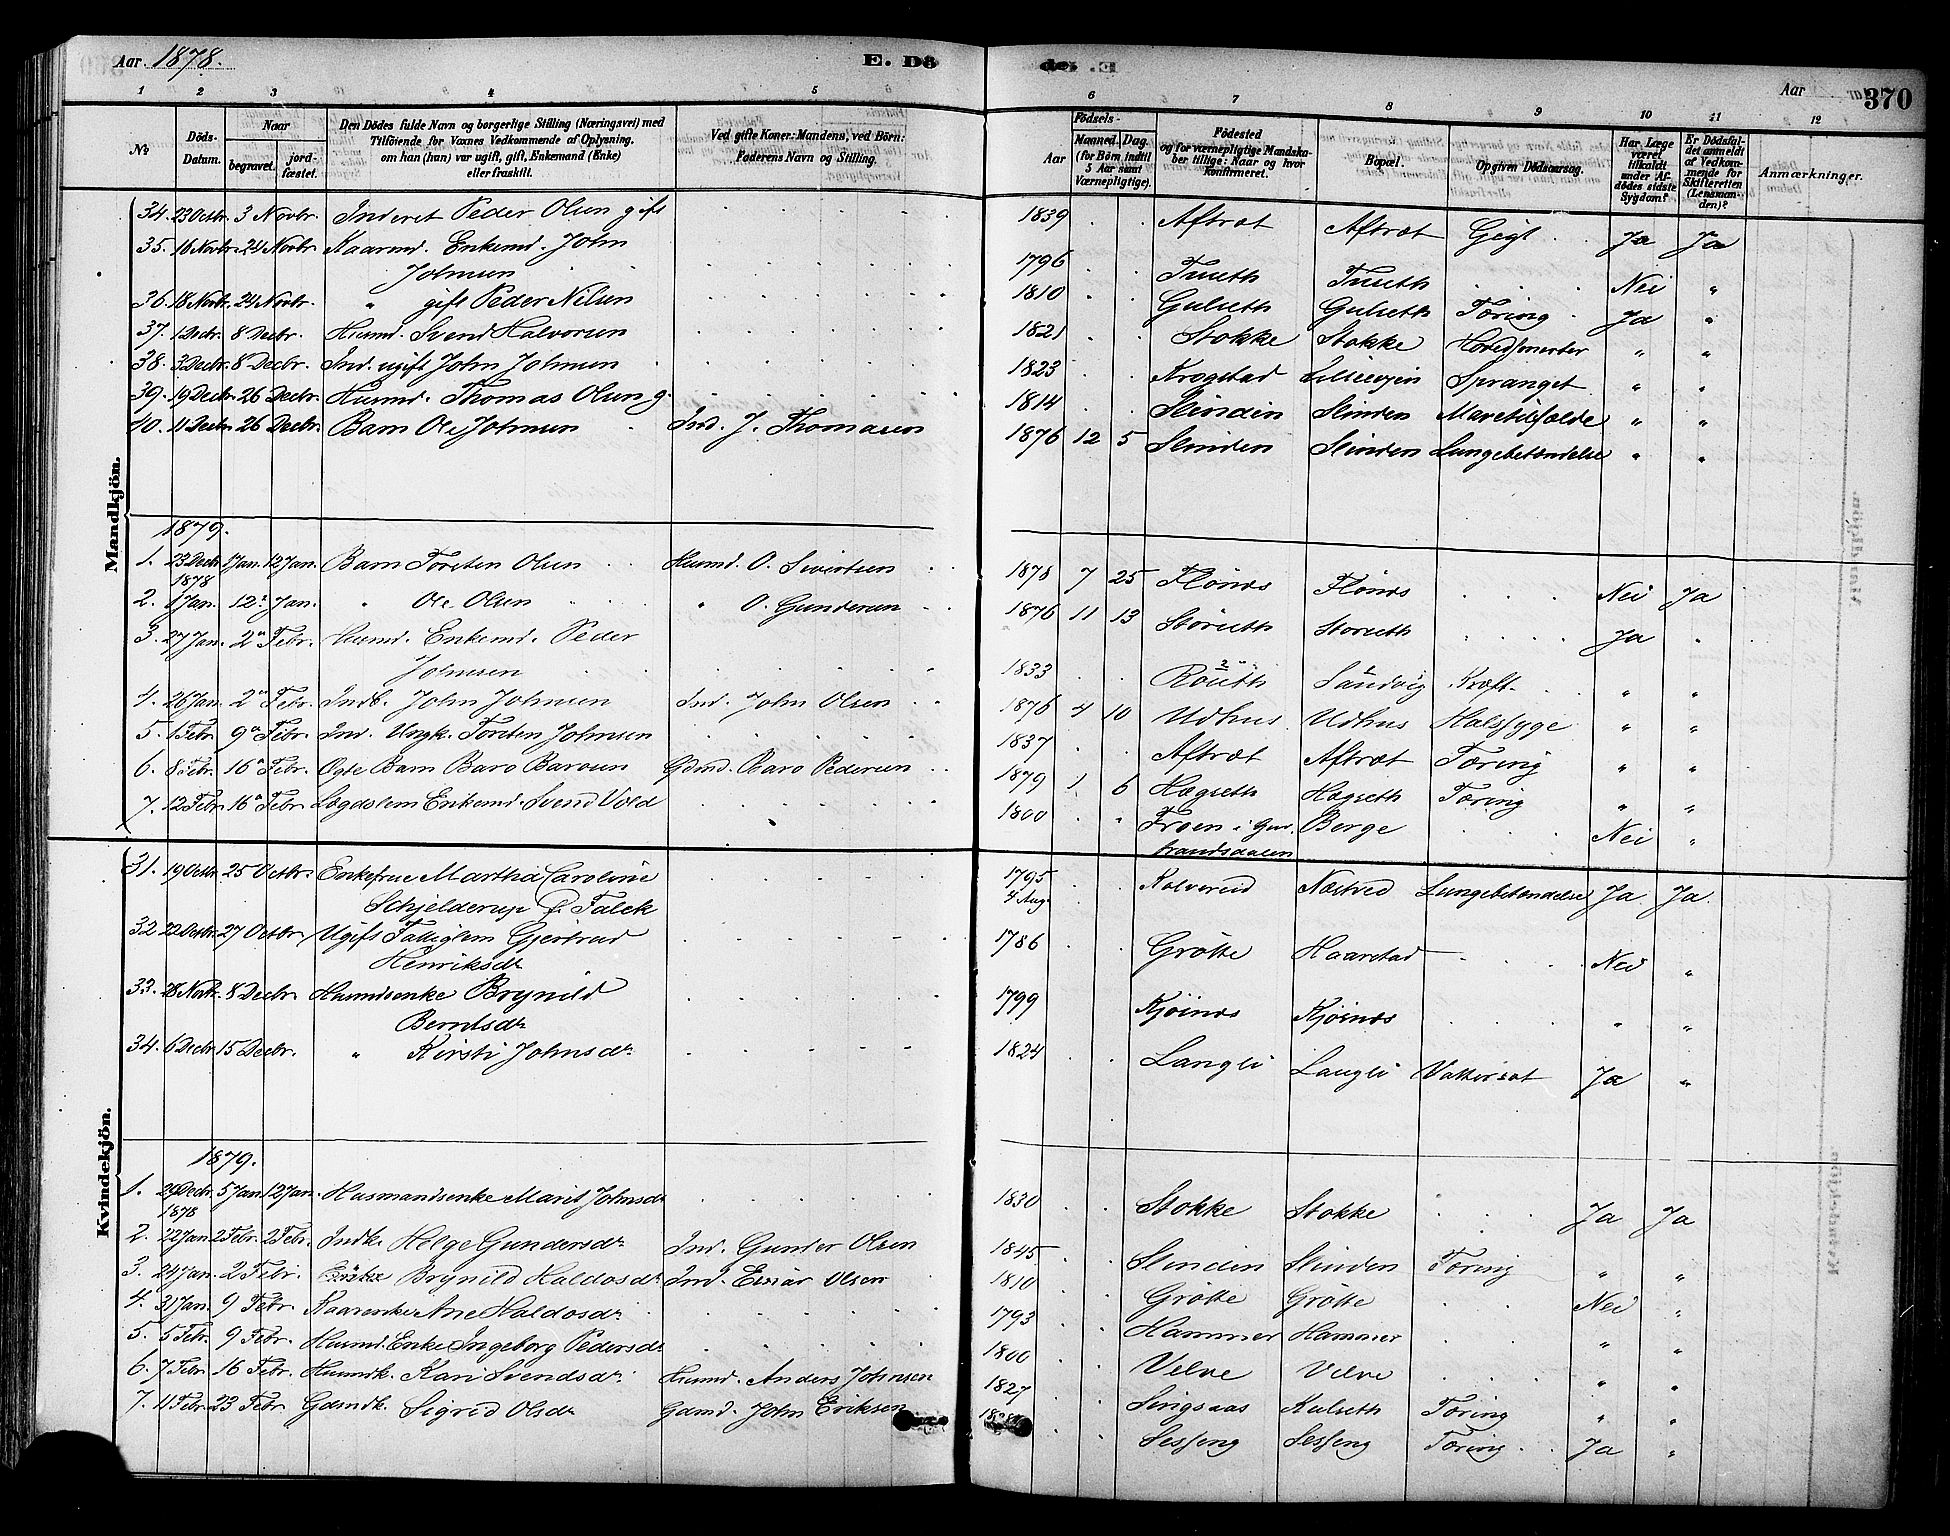 Aar 1878. E. Dö
de. E Aar 370
1 2 3 4 5
6 7 8 9 10 11 12
№ Döds-Datum. Naar begravet. jordfæstet. Den Dödes fulde Navn og borgerlige Stilling (Næringsvei) med Tilföiende for Voxnes Vedkommende af Oplysning, om han (hun) var ugift, gift, Enkemand (Enke) eller fraskilt. Ved gifte Koner: Mandens, ved Börn: Faderens Navn og Stilling.
Födsels- Aar Maaned. Dag. (for Börn indtil 5 Aar samt Værnepligtige). Födested og for værnepligtige Mandskaber tillige: Naar og hvor konfirmeret. Bopæl. Opgiven Dödsaarsag. Har Læge været tilkaldt under Afdödes sidste Sygdom? Er Dödsfaldet anmeldt af Vedkommende for Skifteretten (Lensmanden)? Anmærkninger.
Mandkjön.
34. 23 Octbr. 3 Novbr. Inderst Peder Olsen gift 1839 Aftræt Aftræt Gigt Ja Ja
35. 16 Novbr. 24 Novbr. Kaarmd. Enkemd. John
Johnsen 1796 Tuseth Tuseth Nei "
36. 18 Novbr. 24 Novbr. " gift Peder Nilsen 1810 Gulseth Gulseth Tæring Ja "
37. 1 Decbr. 8 Decbr. Husmd. Svend Halvorsen 1821 Stokke Stokke Hovedsmerter " "
38. 3 Decbr. 8 Decbr. Ind. ugift John Johnsen 1823 Krogstad Spranget " "
39. 19 Decbr. 26 Decbr. Husmd. Thomas Olsen g. 1814 Slinden Slinden " "
40. 11 Decbr. 26 Decbr. Barn Ole Johnsen Ind. J. Thomasen 1876 12 5 Slinden Slinden Lungebetændelse " "
1879.
1. 23 Decbr. 1878 1 Jan. 12 Jan. Barn Torsten Olsen Husmd. O. Sivertsen 1878 7 25 Flønæs Flønæs Nei Ja
2. 1 Jan. 12. Jan. " Ole Olsen " O. Gundersen 1876 11 13 Støruth Storuth Ja "
3. 27 Jan. 2 Febr. Husmd. Enkemd. Peder
Johnsen 1833 Sandvig Kræft " "
4. 26 Jan. 2 Febr. Indb. John Johnsen Ind. John Olsen 1876 4 10 Udhus Udhus Halssyge " "
5. 1 Febr. 9 Febr. Ind. Ungk. Torsten Johnsen 1837 Aftræt Aftræt Tæring " "
6. 8 Febr. 16 Febr. Ægte Barn Baro Barosen Gdmd. Baro Pedersen 1879 1 6 Hægseth Hægseth Tæring " "
7. 12 Febr. 16 Febr. Lægdslem Enkemd. Svend Vold 1800 Froen i Gud- Berge Nei "
brandsdalen
Kvindekjön.
31. 19 Octbr. 25 Octbr. Enkefrue Martha Caroline 1795 Kolvereid Næstved Lungebetændelse Ja Ja.
Schjelderup f. Falck 4 Aug.
32 22 Octbr. 27 Octbr. Ugift Fattiglem Gjertrud 1786 Grøtte Haarstad Nei "
Henriksdr
33. 28 Novbr. 8 Decbr. Husmdsenke Brynild 1799 Kjøinæs Kjøinæs " "
Berntsdr
34. 6 Decbr. 15 Decbr. " Kirsti Johnsdr. 1824 Langli Langli Vattersot Ja "
1879.
1. 29 Decbr. 1878 5 Jan. 12 Jan. Husmandsenke Marit Johnsdr 1830 Stokke Stokke Ja Ja
2. 22 Jan. 2 Febr. 2 Febr. Indk. Helge Gundersdr. Ind. Gunder Olsen 1845 Slinden Slinden Tæring " "
3. 24 Jan. 2 Febr. Brynild Haldosdr Ind. Einar Olsen 1810 Grøtte Grøtte Nei "
4. 31 Jan. 9 Febr. Kaarenke Ane Haldosdr. 1793 Hammer Hammer " "
5. 5 Febr. 9 Febr. Husmd. Enke Ingeborg Pedersdr 1800 Velve Velve " "
6. 7 Febr. 16 Febr. Husmdk. Kari Svendsdr. Husmd. Anders Johnsen 1827 Singsaas Kulseth Tæring " "
7. 11 Febr. 23 Febr. Gdmdk. Sigrid Olsdr Gdmd. John Eriksen Sesseng Sesseng Tæring Ja "